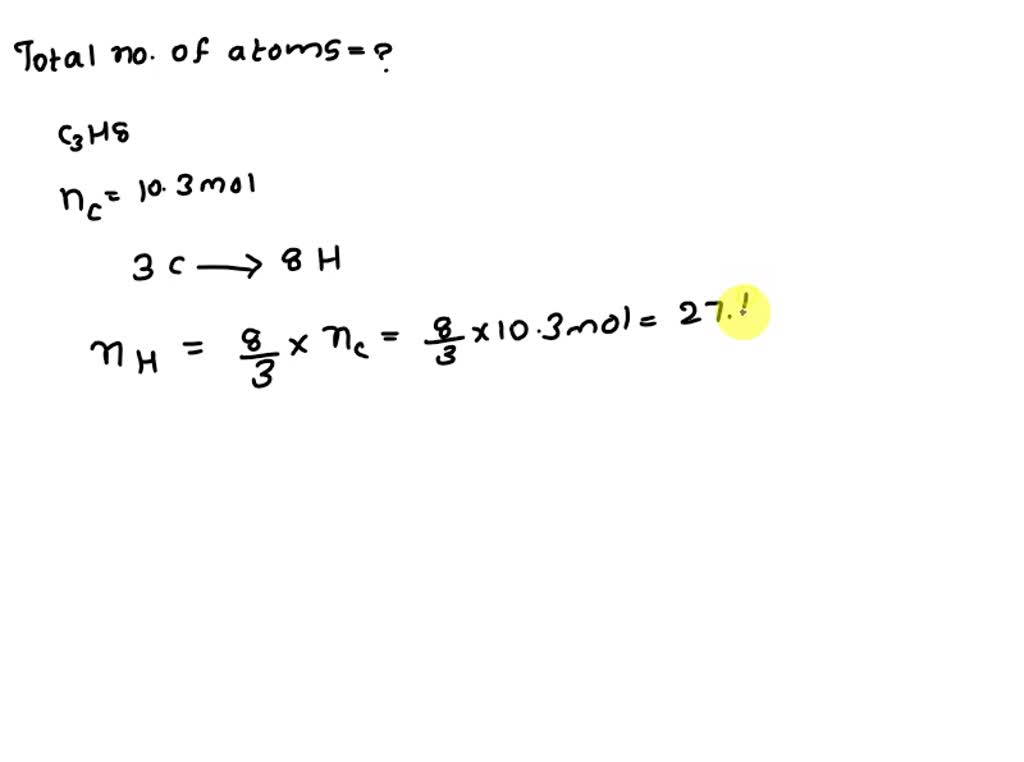 Total no. of atoms = ?
C₃H8
n_C = 10.3 mol
3 C ⟶ 8 H
n_H = 8/3 × n_C = 8/3 × 10.3 mol = 27.